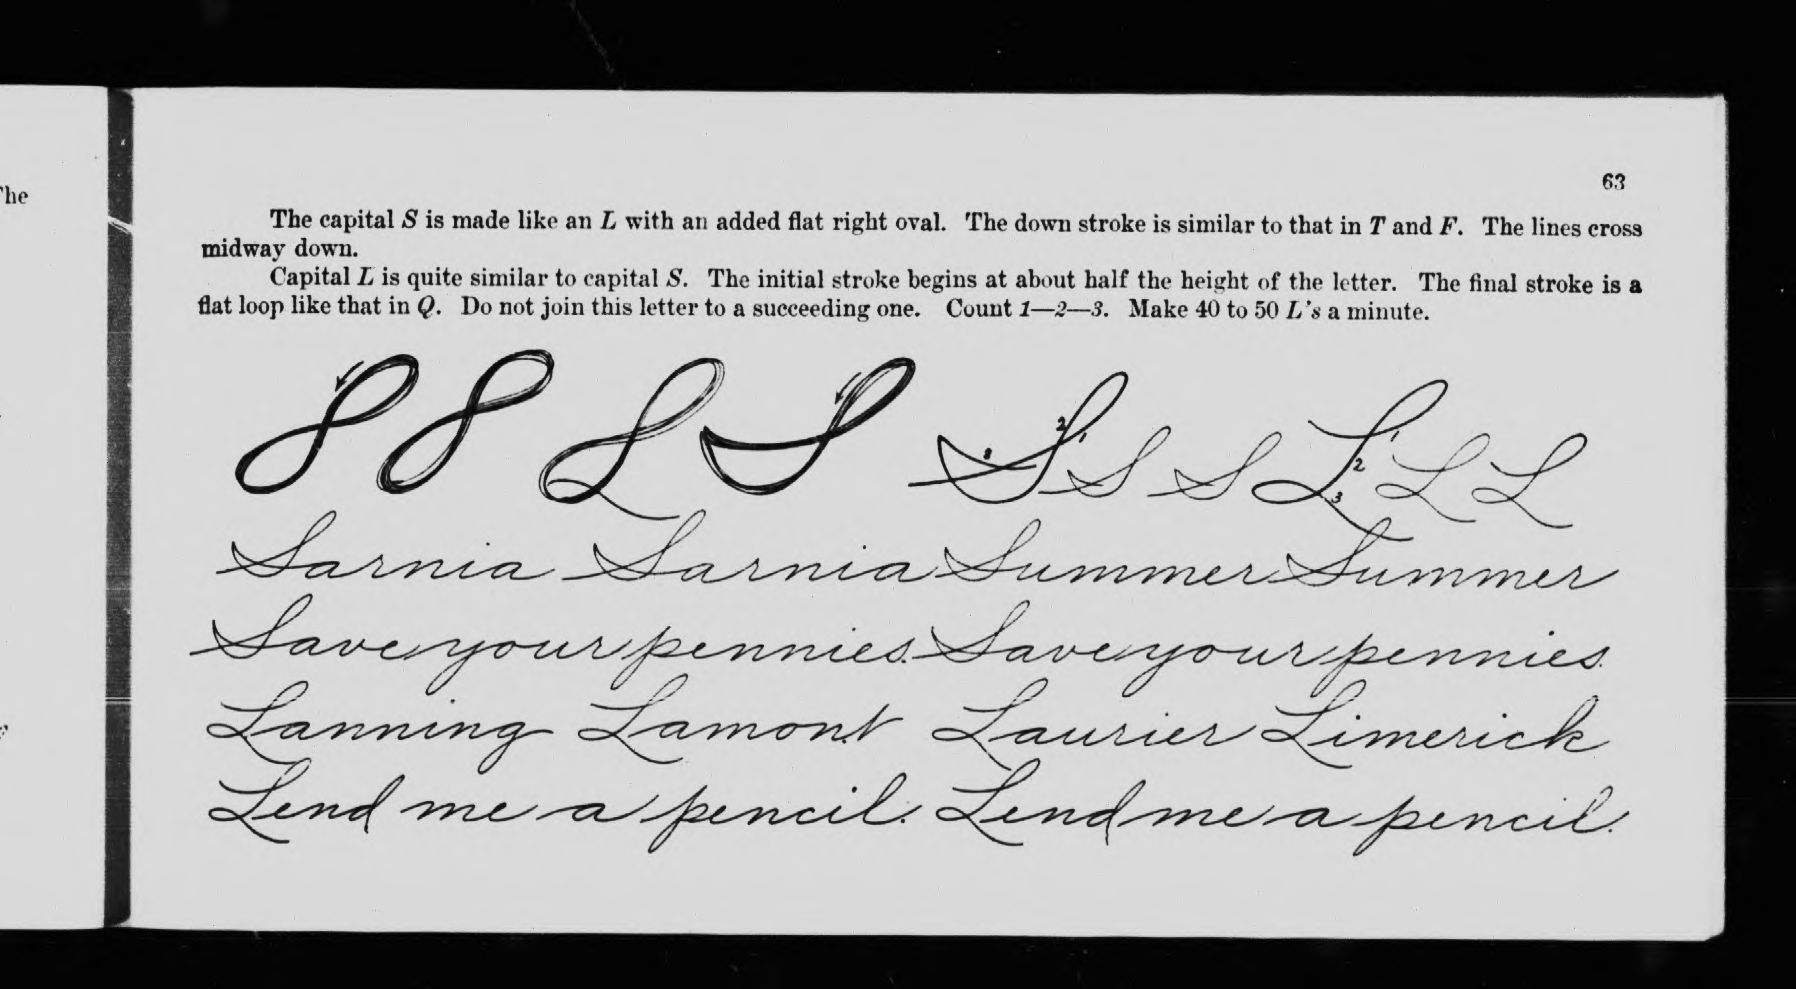 'he
63
The capital S is made like an L with an added flat right oval. The down stroke is similar to that in T and F. The lines cross
midway down.
Capital L is quite similar to capital S. The initial stroke begins at about half the height of the letter. The final stroke is a
flat loop like that in Q. Do not join this letter to a succeeding one. Count 1—2—3. Make 40 to 50 L's a minute.
S 1 2 3 S S L 1 2 3 L L
Sarnia Sarnia Summer Summer
Save your pennies. Save your pennies.
Lanning Lamont Laurier Limerick
Lend me a pencil. Lend me a pencil.